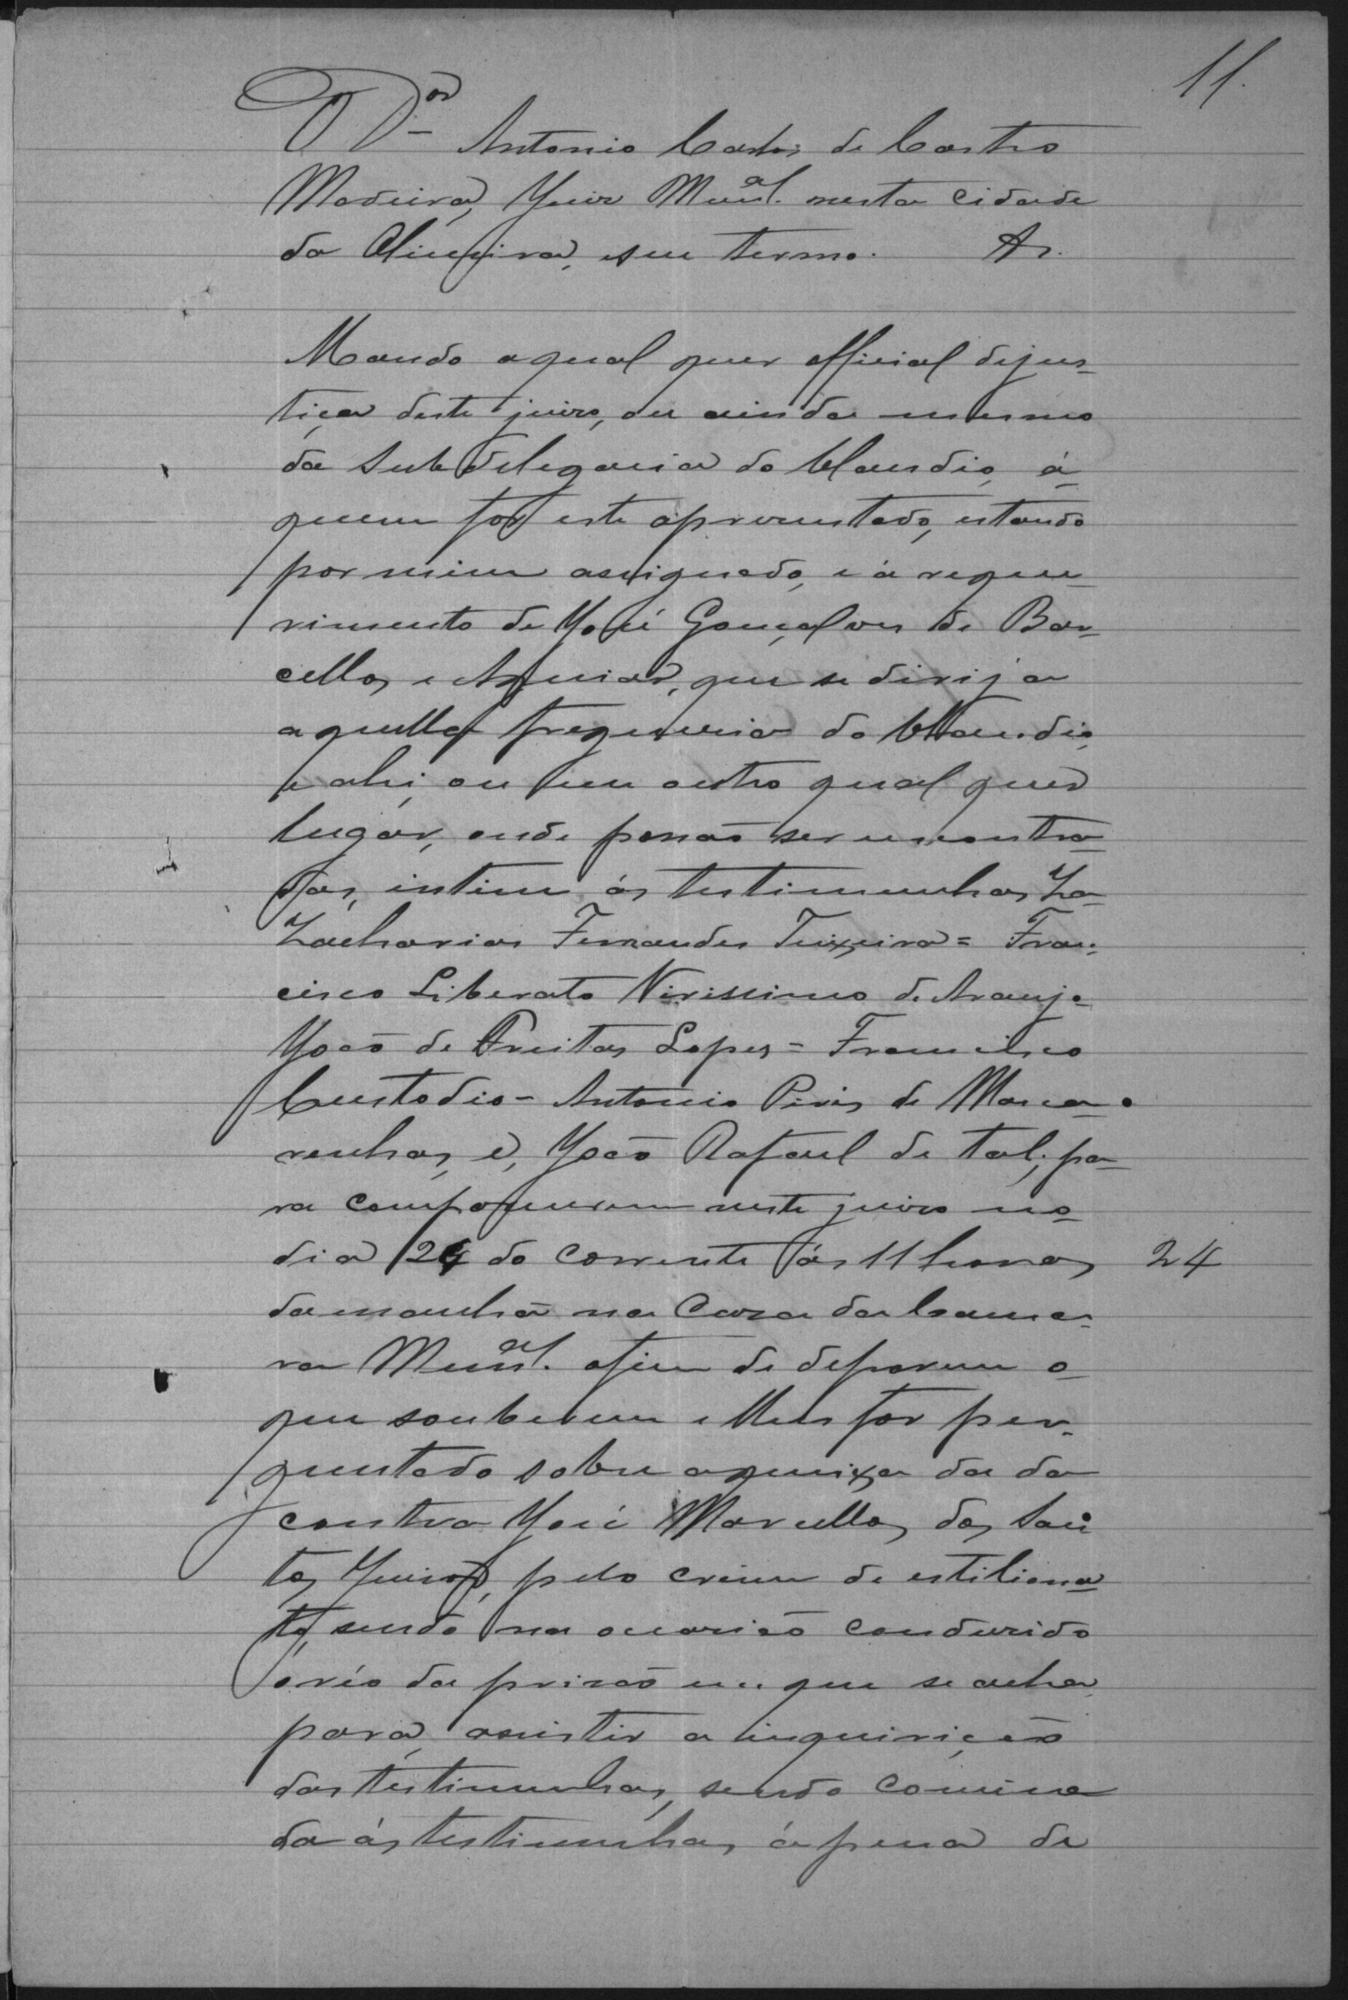 11.
O D.or Antonio Carlos de Castro
Madeira, Juiz Mun.al nesta cidade
da Oliveira, e seu termo. &.
Mando a qual quer official de jus-
tiça deste juizo, ou ainda mesmo
da Subdelegacia do Claudio, á
quem for este apresentado, estando
por mim assignado, e á reque-
rimento de José Gonçalves de Bar-
cellos e Aguiar, que se dirija
aquella freguesia do Claudio,
e ahi, ou em outro qual quer
lugar, onde possão ser encontra-
das, intime ás testimunhas Za-
Zacharias Fernandes Teixeira = Fran-
cisco Liberato Virissimo de Araujo
João de Freitas Lopes = Francisco
Custodio - Antonio Pires de Masca-
renhas, e, João Rafael de tal, pa-
ra comparecerem neste juizo no
dia 24 do corrente ás 11 horas 24
da manhã na Caza da Cama-
ra Mun.al afim de deporem o
que souberem e lhes for per-
guntado sobre a queixa da da
contra José Marcellos dos San
tos, pelo crime de estiliona
to, sendo na occasião conduzido
o réo da prizão em que se acha
para assistir a inquirição
das testimunhas, sendo comina
da ás testimunhas á pena de